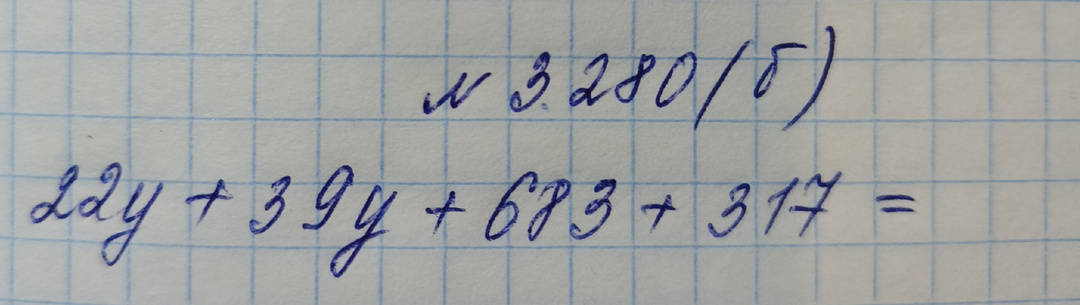 № 3.280(б)
22y + 39y + 683 + 317 =